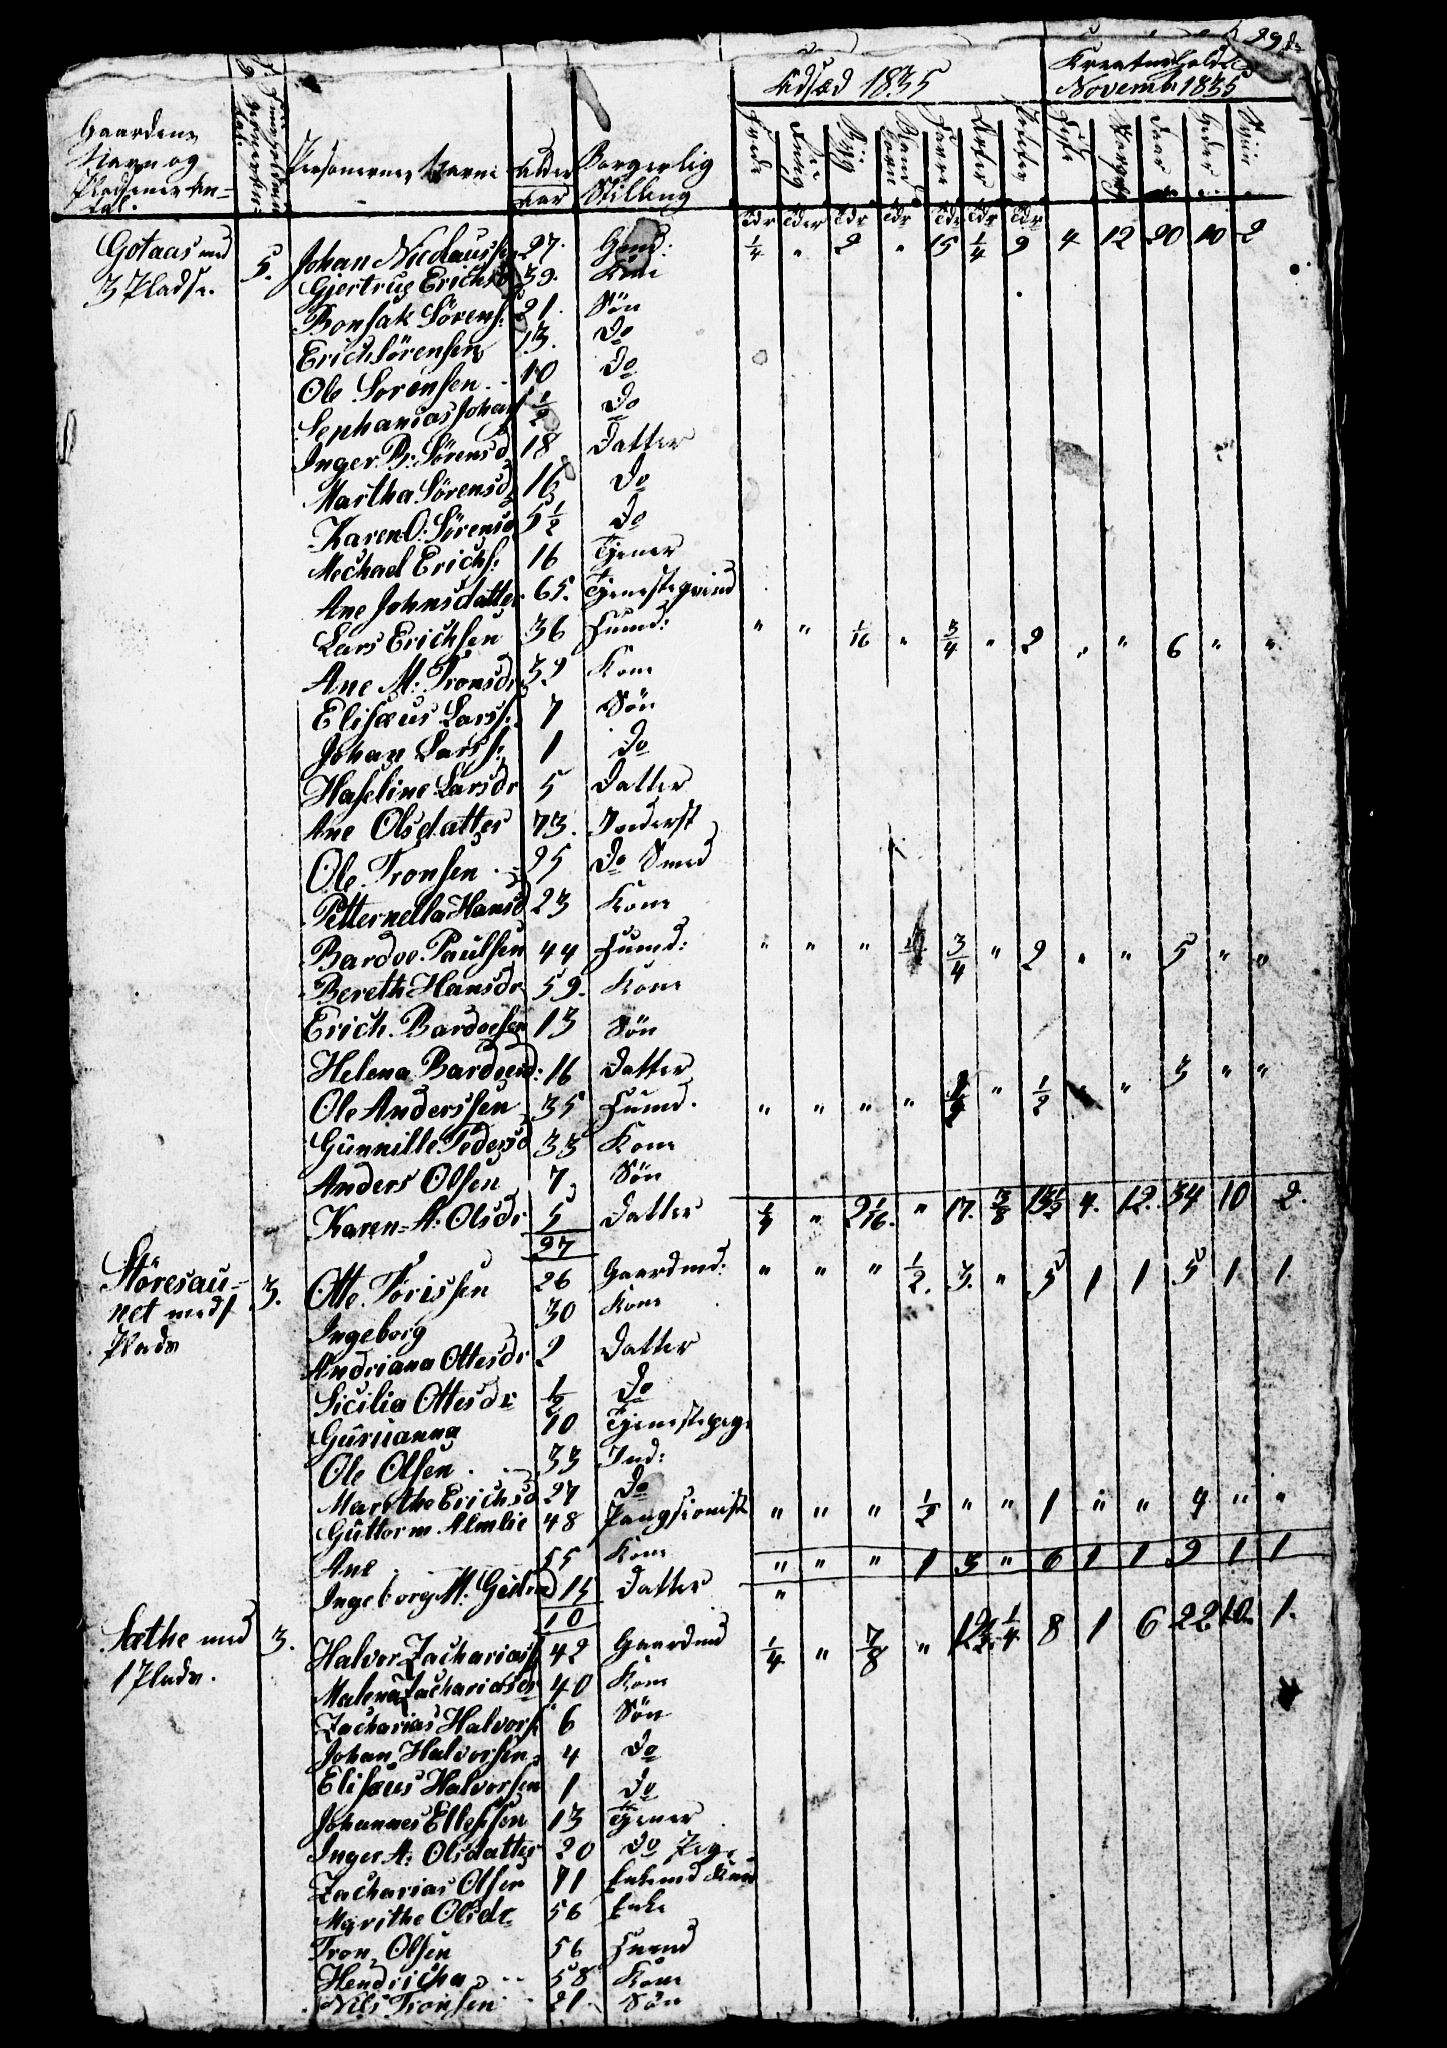 29de
Udsæd 1835
Kreaturhold
Novembr 1835
Gaardens
Navn og
Pladsenes An-
tal.
Personernes Navne
Alder
Aar
Borgerlig
Stilling
Hvede
Rug
Byg
Bland
Korn
Havre
Erter
Poteter
Heste
Faar
Geder
Sviin
Tdr Tdr Tdr Tdr Tdr Tdr Tdr
Gotaas med 5. Johan Nicolauss: 27. Gmd: 1/4 " 2 " 15 1/4 9 4 12 20 10 2
3 Pladse. Gjertrug Erichsd 39. Kone
Bonsak Sörens: 21. Sön
Erich Sörensen 13. Do
Ole Sörensen 10 Do
Sephanias Johans 1/2 Do
Inger B: Sörensd 18 Datter
Martha Sörensd 16 Do
Karen O: Sörensd 5 1/2 Do
Mechael Erichs: 16 Tjener
Ane Johnsdatter 65. Tjenesteqvind
Lars Erichsen 36 Huusmd: " " 1/16 " 3/4 " 2 " " 6 " "
Ane M: Tronsdr 39 Kone
Elisæus Larss: 7 Sön
Johan Larss: 1 Do
Haseline Larsdr 5 Datter
Ane Olsdatter 73. Inderst
Ole Tronsen 25 Do Smed
Petternella Hansd 23 Kone
Bardoe Paulsen 44 Huusmd: " " " 3/4 " 2 " " 5 " "
Bereth Hansdr 59. Kone
Erich Bardoesen 13 Sön
Helena Bardoesd: 16 Datter
Ole Anderssen 35 Huusmd. " " " " " 1/2 " " 3 " "
Gunnille Pedersd 33 Kone
Anders Olsen 7 Sön
Karen A: Olsdr 5 Datter 1/4 " 2 1/16. " 17. 3/8 4. 12. 34 10 2.
27
Störesau- 3. Otte Torissen 26 Gaardmd: " " " 1/2. 3. " 5 1 1 5 1 1
net med 1 Ingeborg 30 Kone
Plads Andriana Ottesdr 2 Datter
Sicilia Ottesdr 1/2 Do
Guruanna 10 Tjenestepige
Ole Olsen 33 Ind:
Marethe Erichsd 27 Do
Guttorm Almlie 48 Pangsionist " " " 1/2 " " 1 " " 4 " "
Ane 55 Kone " " " 1 3 " 6 1 1 9 1 1
Ingeborg M. 15 Datter "
10
Sæthe med 3. Halvor Zachariass 42 Gaardmd 1/4 " 7/8 " 1/4 8 1 6 22 10 1.
1 Plads. Malena Zachariasdr 40 Kone
Zacharias Halvors 6 Sön
Johan Halvorsen 4 Do
Elisæus Halvorsen 1 Do
Johannes Ellefsen 13 Tjener
Inger A: Olsdatter 20 Do Pige
Zacharias Olsen 71 Enkemd
Marithe Olsdr 56 Enke
Tron Olsen 56 Huusmd
Hendricha 58 Kone
Nils Tronsen 21 Sön